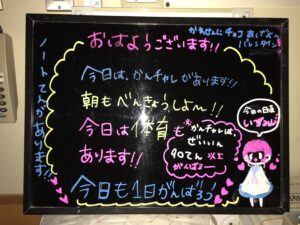 おはようございます!!
今日は、かんチャレがあります!!
朝もべんきょうしよ〜!!
今日は体育も
あります!!
かんチャレは、
ぜいいん
90てん以上
がんばるー
今日も1日がんばろう
ノートてんかあります!!
チョコ あげてね
バレンタイン
今日の日直